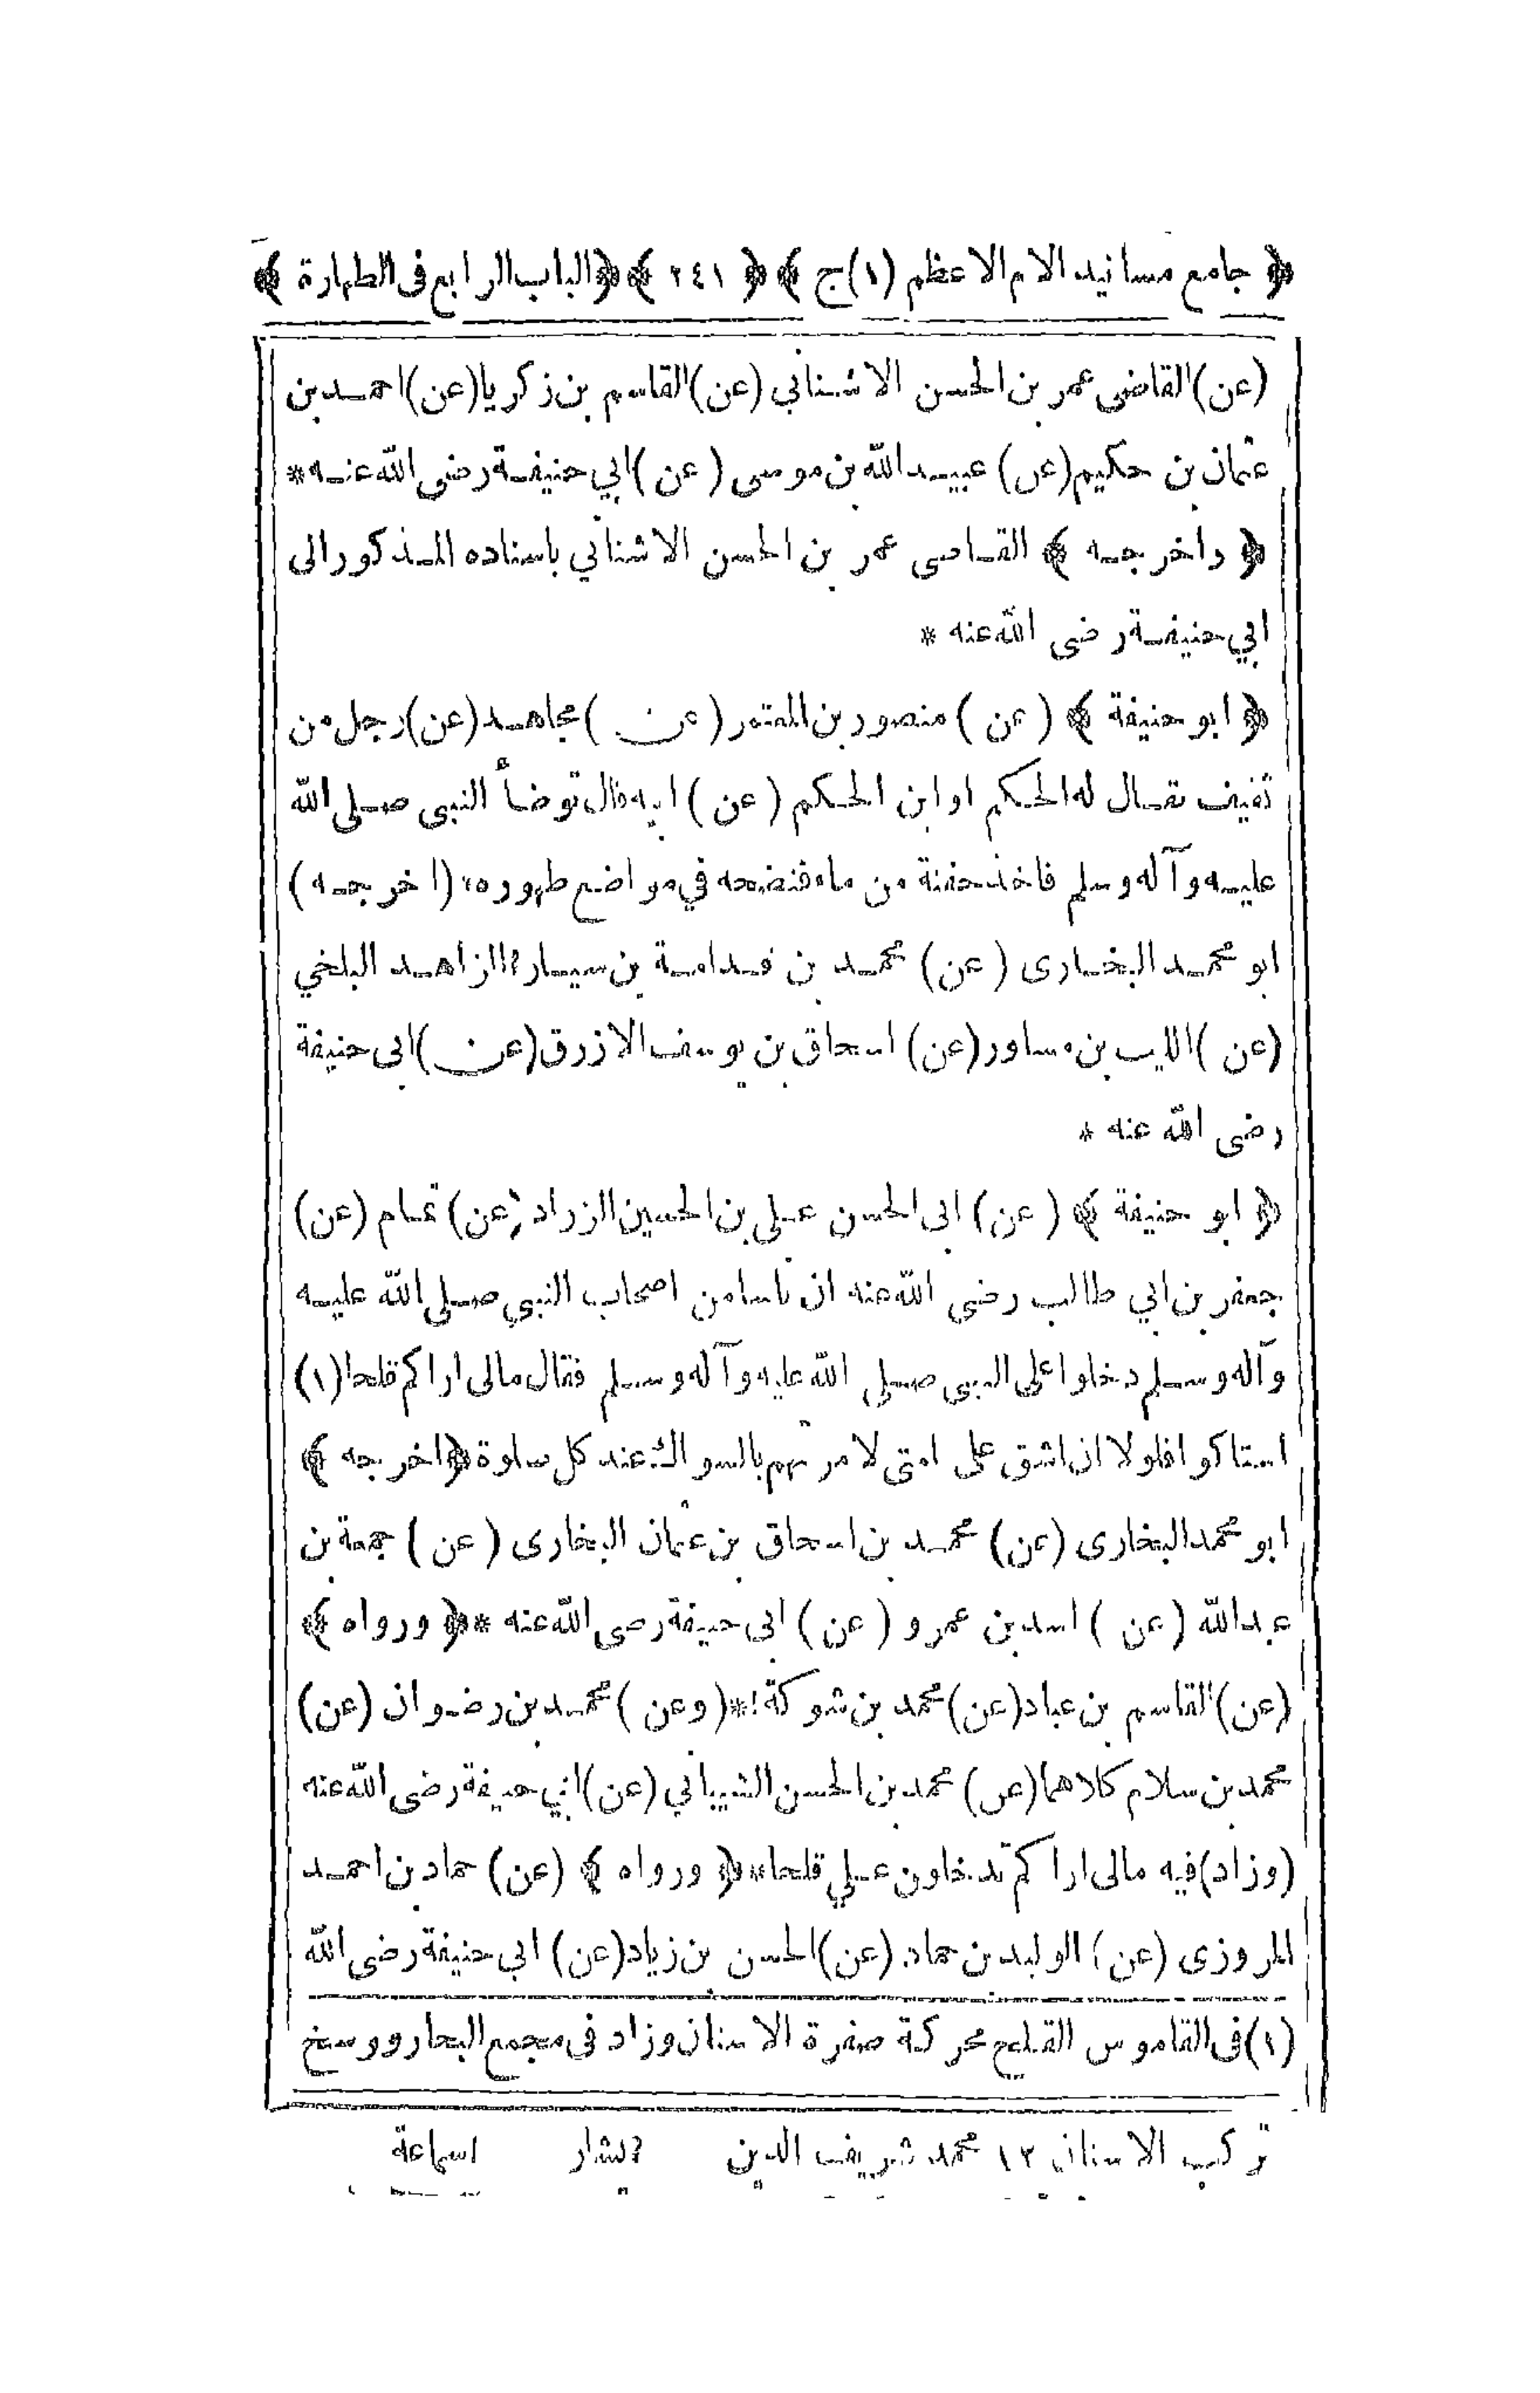 ﴿ جامع مسانيد الامام الاعظم (١)ج ﴾ ﴿ ٢٤١ ﴾ ﴿ الباب الرابع فى الطهارة ﴾
(عن) القاضى عمر بن الحسن الاشناني (عن) القاسم بن زكريا (عن) احمد بن
عثمان بن حكيم (عن) عبيد الله بن موسى (عن) ابي حنيفة رضى الله عنه *
﴿ واخرجه ﴾ القاضى عمر بن الحسن الاشناني باسناده المذكور الى
ابي حنيفة رضى الله عنه *
﴿ ابو حنيفة ﴾ (عن) منصور بن المعتمر (عن) مجاهد (عن) رجل من
ثقيف يقال له الحكم او ابن الحكم (عن) ابيه قال توضأ النبى صلى الله
عليه وآله وسلم فاخذ حفنة من ماء فنضحه في مواضع طهوره * (اخرجه)
ابو محمد البخارى (عن) محمد بن قدامة بن سيار ٢ الزاهد البلخي
(عن) الليث بن مساور (عن) اسحاق بن يوسف الازرق (عن) ابى حنيفة
رضى الله عنه *
﴿ ابو حنيفة ﴾ (عن) ابى الحسن على بن الحسين الزراد (عن) تمام (عن)
جعفر بن ابي طالب رضى الله عنه ان ناسا من اصحاب النبي صلى الله عليه
وآله وسلم دخلوا على النبى صلى الله عليه وآله وسلم فقال مالى اراكم قلحا (١)
استاكوا فلولا ان اشق على امتى لامرتهم بالسواك عند كل صلوة ﴿ اخرجه ﴾
ابو محمد البخارى (عن) محمد بن اسحاق بن عثمان البخارى (عن) جمعة بن
عبد الله (عن) اسد بن عمرو (عن) ابى حنيفة رضى الله عنه * ﴿ ورواه ﴾
(عن) القاسم بن عباد (عن) محمد بن شوكة * (وعن) محمد بن رضوان (عن)
محمد بن سلام كلاهما (عن) محمد بن الحسن الشيباني (عن) ابي حنيفة رضى الله عنه
(وزاد) فيه مالى اراكم تدخلون علي قلحا * ﴿ ورواه ﴾ (عن) حماد بن احمد
المروزى (عن) الوليد بن حماد (عن) الحسن بن زياد (عن) ابي حنيفة رضى الله
(١) فى القاموس القلح محركة صفرة الاسنان وزاد فى مجمع البحار ووسخ
تركب الاسنان ١٢ محمد شريف الدين ٢ بشار